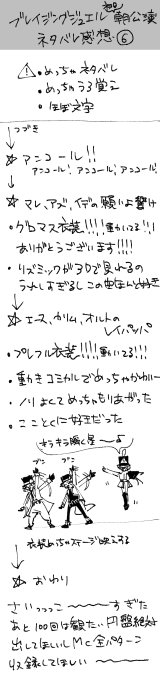 ブレイジングジュエル 朝公演
ネタバレ感想⑥
・めっちゃネタバレ
・めっちゃうろ覚え
・ほぼ文字
つづき
☆アンコール!!
アンコール!アンコール!アンコール!
☆マレ、アズ、イデの願いよ響け
・グロマス衣装!!!!動いてる!!!
ありがとうございます!!!!
・リズミックが3Dで見れるの
うれしすぎるしこの曲ほんと好き
☆エース、カリム、オルトの
パッパ
・プレフル衣装!!!!動いてる!!!
・動きコミカルでめっちゃかわいー
・ノリよくてめっちゃもりあがった
・ことに好きだった
キラキラ瞬く星〜よ
ブン
ブン
衣装めちゃステージ映えする
☆おわり
さいっっっこ〜〜〜〜すぎた
あと100回は観たい 円盤絶対
出してほしいしMC全パターン
収録してほしい〜〜〜〜